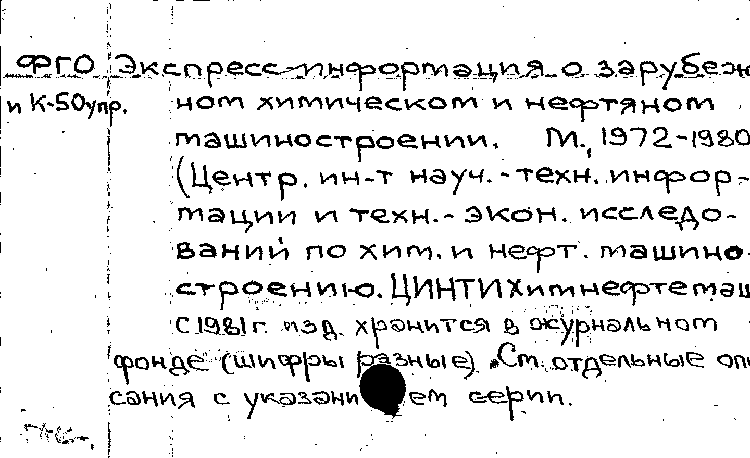 ФГО Экспресс-информация о зарубеж
и К-50упр. ном химическом и нефтяном
машиностроении. М., 1972-1980
(Центр. ин-т науч.-техн. инфор-
мации и техн.-экон. исследо-
ваний по хим. и нефт. машино-
строению. ЦИНТИхимнефтемаш
С 1981г. изд. хранится в журнальном
фонде (шифры разные). См. отдельные опи
сания с указани ем серии.